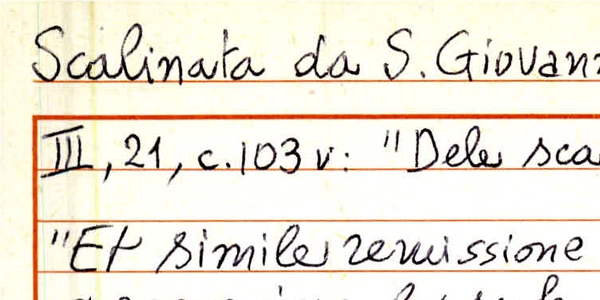 Scalinata da S. Giovann
III, 21, c. 103 v: "Dele sca
"Et simile remissione